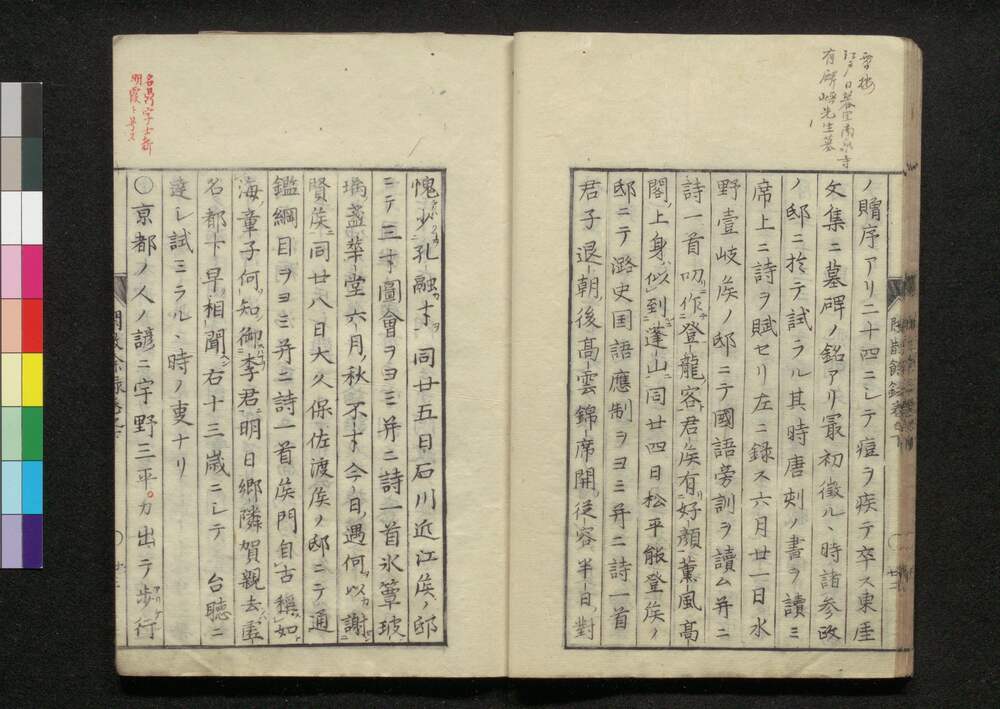 雪樓
江戸日暮里南泉寺
有麟嶼先生墓
ノ贈序アリ二十四ニシテ痘ヲ疾テ卒ス東厓
文集ニ墓碑ノ銘アリ最初徴ル、時諸参政
ノ邸ニ於テ試ラル其時唐刻ノ書ヲ讀ミ
席上ニ詩ヲ賦セリ左ニ録ス六月廿一日水
野壹岐侯ノ邸ニテ國語旁訓ヲ讀ム并ニ
詩一首叨作登龍客君侯有好顔薫風高
閣上身似到蓬山同廿四日松平能登侯ノ
邸ニテ潞史国語應制ヲヨミ并ニ詩一首
君子退朝後高雲錦席開従容半日對
愧少孔融才同廿五日石川近江侯ノ邸
ニテ三才圖會ヲヨミ并ニ詩一首氷簟玻
璃盞華堂六月秋不才今日遇何以謝
賢侯同廿八日大久保佐渡侯ノ邸ニテ通
鑑綱目ヲヨミ并ニ詩一首侯門自古稱如
海童子何知御李君明日郷隣賀親去
名都十早相聞右十三歳ニシテ 台聴ニ
達シ試ミラル、時ノ叓ナリ
○京都ノ人ノ諺ニ宇野三平。カ出テ歩行
名鼎字士新
明霞ト号ス